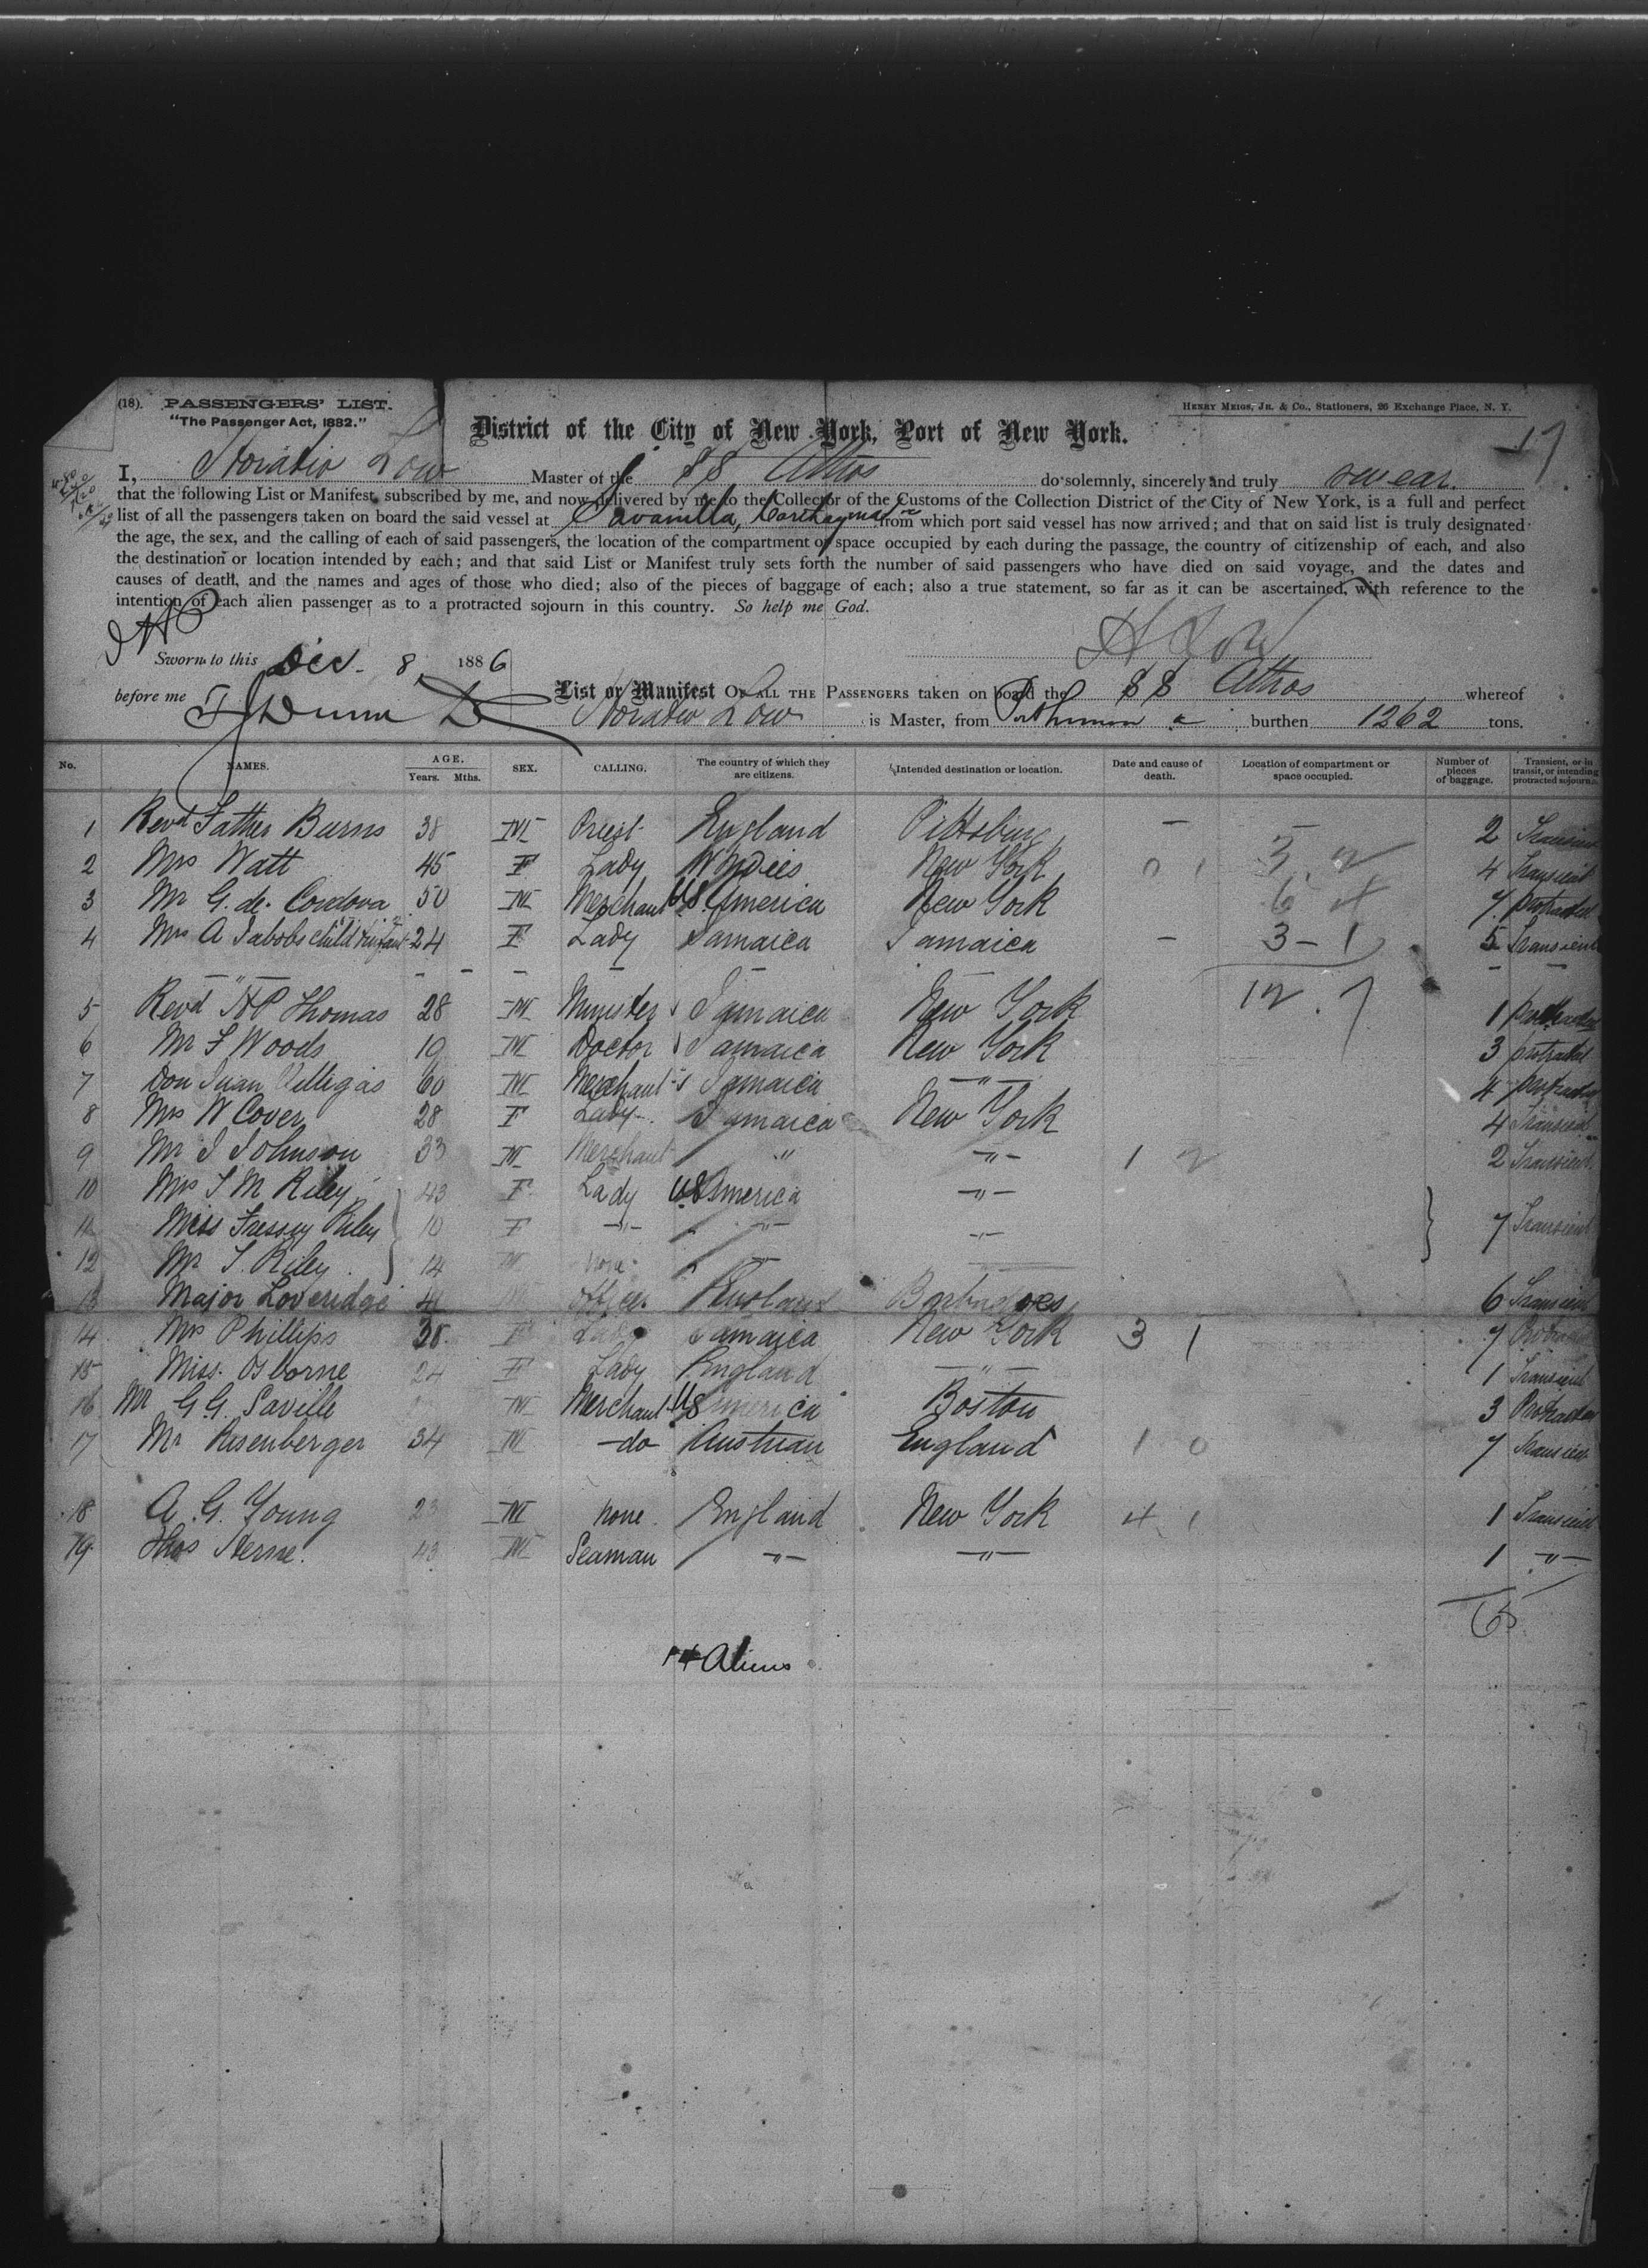 (18). PASSENGERS' LIST.
HENRY MEIGS, JR. & Co., Stationers, 26 Exchange Place, N. Y.
"The Passenger Act, 1882."
District of the City of New York, Port of New York.
17
I, Horatio Low Master of the SS Athos do solemnly, sincerely and truly swear.
that the following List or Manifest, subscribed by me, and now delivered by me to the Collector of the Customs of the Collection District of the City of New York, is a full and perfect
list of all the passengers taken on board the said vessel at Savanilla, from which port said vessel has now arrived; and that on said list is truly designated
the age, the sex, and the calling of each of said passengers, the location of the compartment or space occupied by each during the passage, the country of citizenship of each, and also
the destination or location intended by each; and that said List or Manifest truly sets forth the number of said passengers who have died on said voyage, and the dates and
causes of death, and the names and ages of those who died; also of the pieces of baggage of each; also a true statement, so far as it can be ascertained, with reference to the
intention of each alien passenger as to a protracted sojourn in this country. So help me God.
H Low
Sworn to this Dec. 8, 1886
before me
List or Manifest OF ALL THE PASSENGERS taken on board the SS Athos whereof
Horatio Low is Master, from burthen 1262 tons.
No. NAMES. AGE. Years. Mths. SEX. CALLING. The country of which they are citizens. Intended destination or location. Date and cause of death. Location of compartment or space occupied. Number of pieces of baggage. Transient, or in transit, or intending protracted sojourn.
1 Revd Father Burns 38 M Priest England Pittsburg — 2 Transient
2 Mrs Watt 45 F Lady W Indies New York 0 1 4 Transient
3 Mr G. de. Cordova 50 M Merchant U.S. America New York 6 4 7 protracted
4 Mrs A Jabobs child & infant 24 F Lady Jamaica Jamaica — 3 - 1 5 Transient
12. 7
5 Revd HP Thomas 28 M Minister Jamaica New York 1 protracted
6 Mr F Woods 19 M Doctor Jamaica New York 3 protracted
7 Don Juan Villegas 60 M Merchant Jamaica — " — 4 protracted
8 Mrs W Cover 28 F Lady Jamaica New York 4 Transient
9 Mr J Johnson 33 M Merchant " — " — 1 2 2 Transient
10 Mrs S M Riley 43 F Lady U.S America — " —
11 Miss Riley 10 F — " — — " — — " — 7 Transient
12 Mr S. Riley 14 M
13 Major Loveridge 41 Officer England Barbadoes 6 Transient
14 Mrs Phillips 38 F Lady Jamaica New York 3 1 7 Protracted
15 Miss. Osborne 24 F Lady England — " — 1 Transient
16 Mr G. G. Saville M Merchant US America Boston 3 Protracted
17 Mr Risenberger 34 M — do Austrian England 1 0 7 Transient
18 A. G. Young 23 M none England New York 4 1 1 Transient
19 Thos Herne. 43 M Seaman — " — — " — 1 — " —
65
14 Aliens